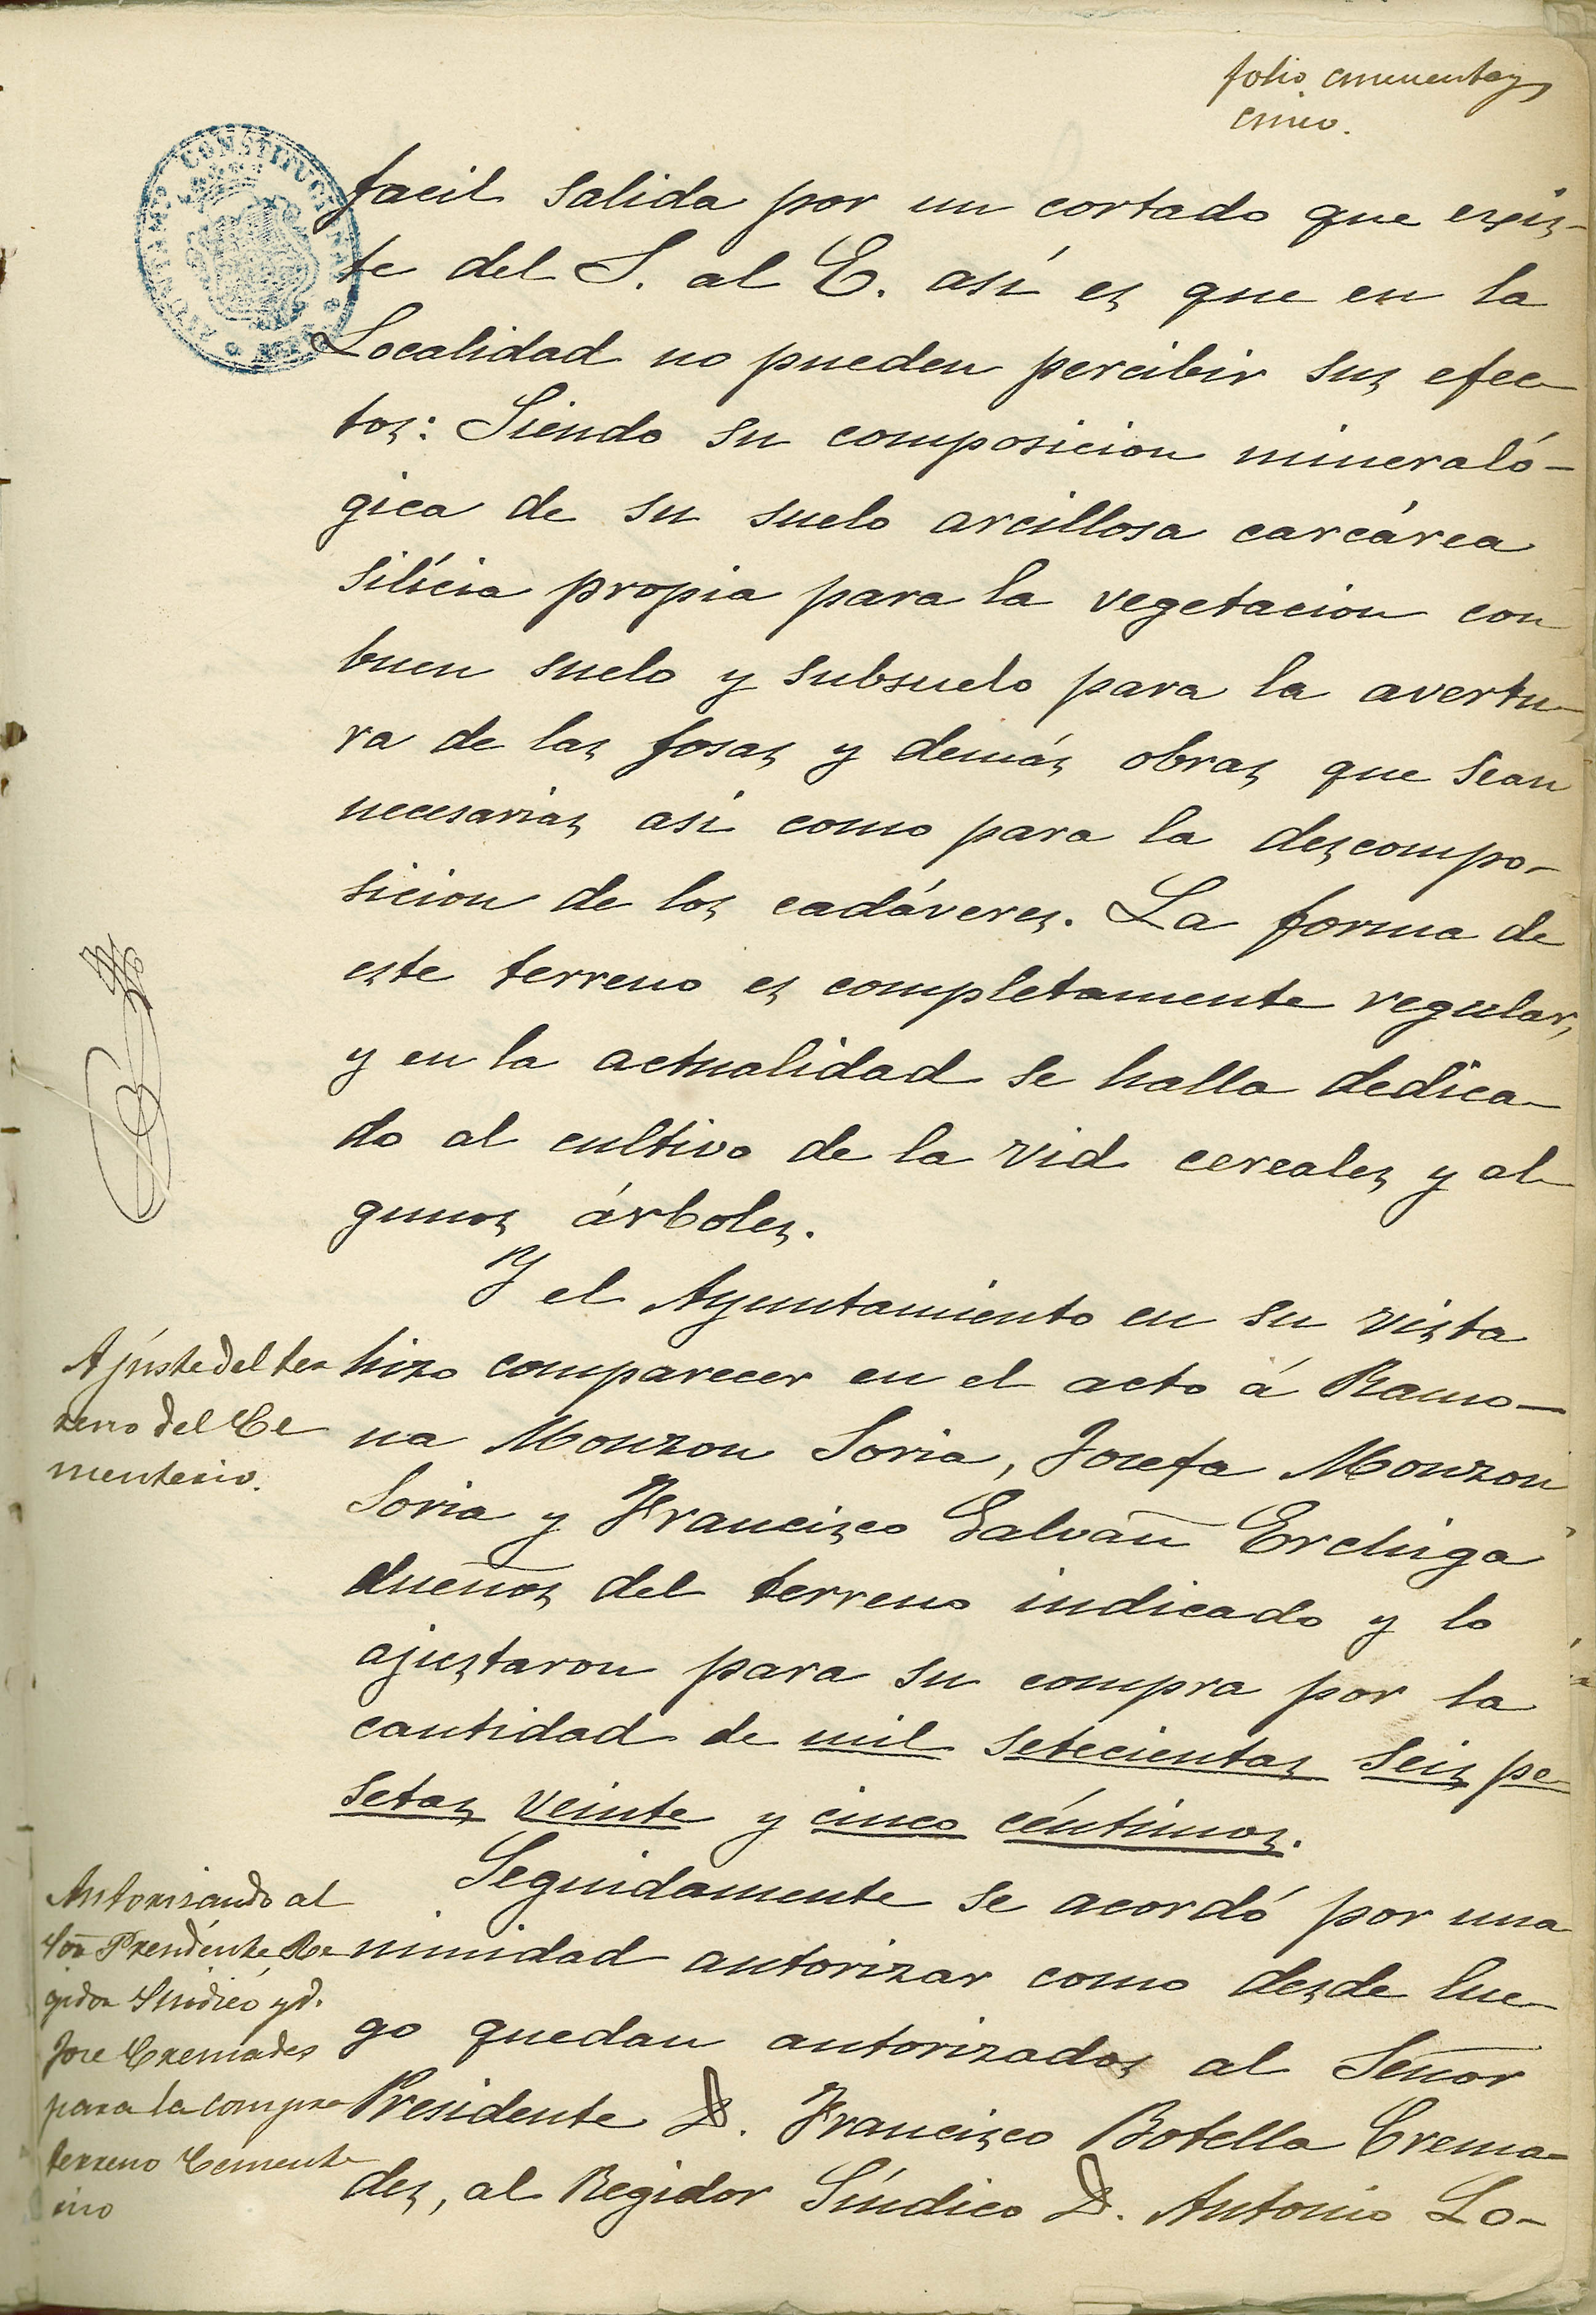 folio cincuenta y
cinco.
facil salida por un cortado que exis-
te del S. al E. así es que en la
Localidad no pueden percibir sus efec-
tos: Siendo su composicion mineraló-
gica de su suelo arcillosa carcárea
silícia propia para la vegetacion con
buen suelo y subsuelo para la avertu-
ra de las fosas y demás obras que sean
necesarias asi como para la descompo-
sicion de los cadáveres. La forma de
este terreno es completamente regular,
y en la actualidad se halla dedica-
do al cultivo de la vid cereales y al-
gunos árboles.
Y el Ayuntamiento en su vista
Ajúste del ter
reno del Ce
menterio.
hizo comparecer en el acto á Ramo-
na Monzon Soria, Josefa Monzon
Soria y Francisco Galvañ Erchiga
dueños del terreno indicado y lo
ajustaron para su compra por la
cantidad de mil setecientas seis pe-
setas veinte y cinco céntimos.
Autorizando al
Sor. Presidente, Re
gidor Sindico y d.
Jose Cremades
para la compra
terreno Cemente
rio
Seguidamente se acordó por una
nimidad autorizar como desde lue-
go quedan autorizados al Señor
Presidente D. Francisco Botella Crema-
des, al Regidor Síndico D. Antonio Lo-
CONSTITUCIONAL